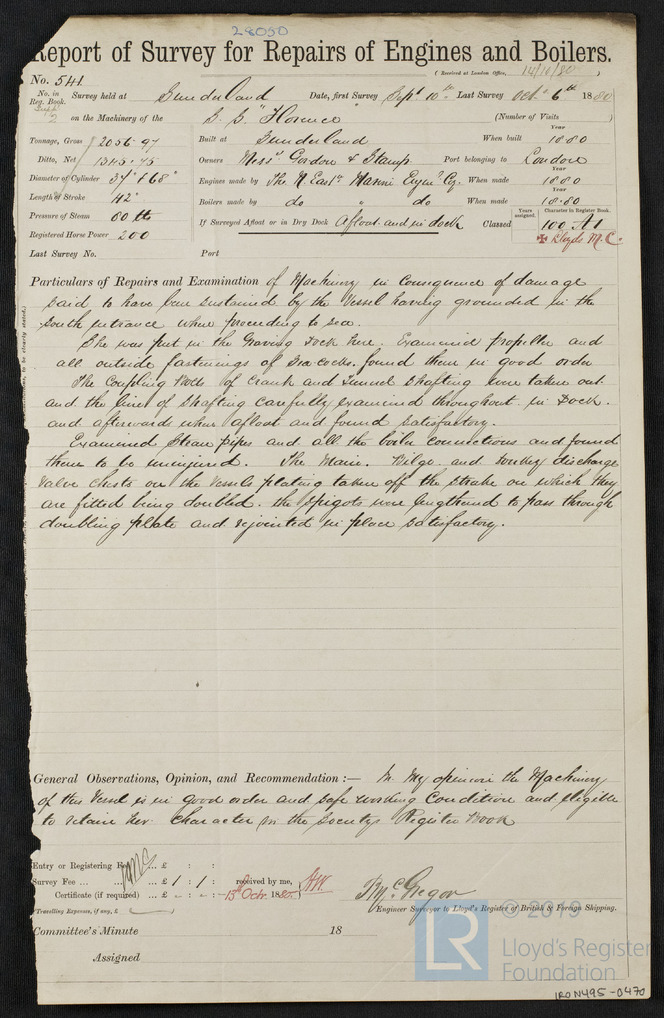 28050
Report of Survey for Repairs of Engines and Boilers.
(Received at London Office, 14/10/80)
No. 541
No. in Reg. Book. Survey held at Sunderland Date, first Survey Sept 10th Last Survey Octr 6th 1880
on the Machinery of the S.S. "Florence" (Number of Visits )
Tonnage, Gross 2056.97 Built at Sunderland When built Year 1880
Ditto, Net 1345.75 Owners Messrs Gordon & Stamp Port belonging to London
Diameter of Cylinder 37" & 68" Engines made by The N. Eastn Marine Engng Cy. When made Year 1880
Length of Stroke 42" Boilers made by do " do When made Year 1880
Pressure of Steam 80 lb If Surveyed Afloat or in Dry Dock Afloat and in dock Classed Years assigned. Character in Register Book. 100 A1
Registered Horse Power 200 Lloyds M.C.
Last Survey No. Port
Particulars of Repairs and Examination of Machinery in consequence of damage
said to have been sustained by the Vessel having grounded in the
South entrance when proceeding to sea.
She was put in the Graving Dock here. Examined propeller and
all outside fastenings of Sea cocks. found them in good order
The Coupling bolts of Crank and Tunnel Shafting were taken out
and the line of Shafting carefully examined throughout in Dock.
and afterwards when afloat and found satisfactory.
Examined Steam pipes and all the boiler connections and found
them to be uninjured. The Main. Bilge. and donkey discharge
valve chests on the Vessels plating taken off the strake on which they
are fitted being doubled. the spigots were lengthened to pass through
doubling plate and rejointed in place satisfactory.
General Observations, Opinion, and Recommendation:— In my opinion the Machinery
of this Vessel is in good order and safe working Condition and eligible
to retain her Character in the Societys Register Book
Entry or Registering Fee ... £ : :
Survey Fee ... ... ... £ 1 : 1 : received by me,
Certificate (if required) ... £ - : - : 13th Octr. 1880
(Travelling Expenses, if any, £ )
R. McGregor
Engineer Surveyor to Lloyd's Register of British & Foreign Shipping.
Committee's Minute 18
Assigned
LR
© 2019
Lloyd's Register
Foundation
IRON495-0470